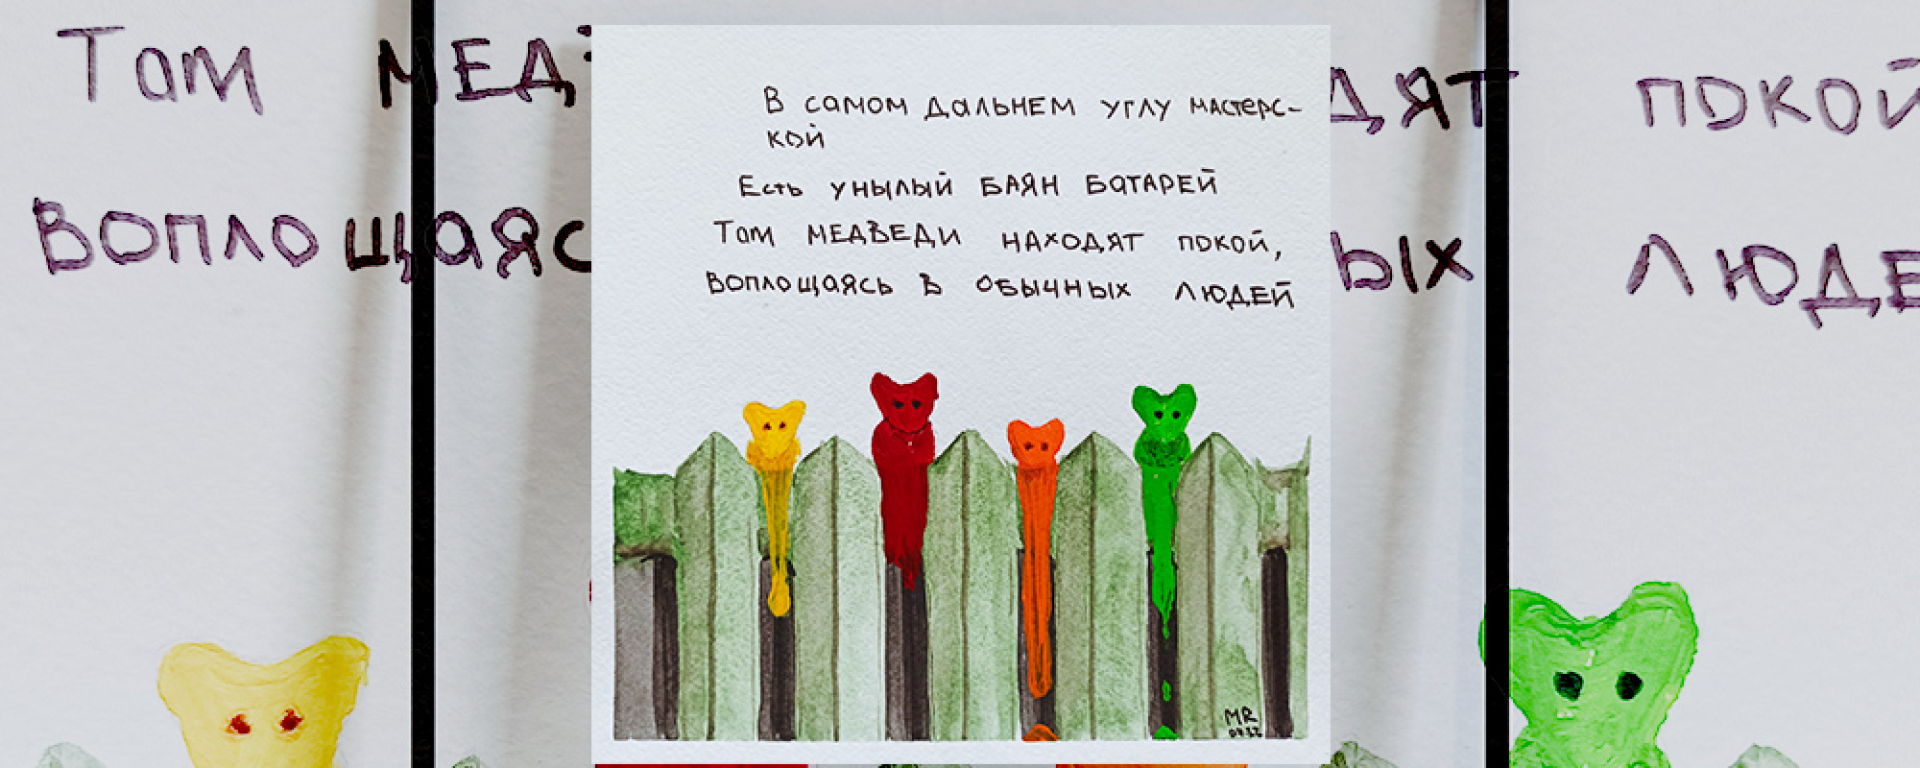 Там МЕД
ДЯТ покой
Воплощаяс
ых ЛЮДЕ
В самом дальнем углу мастерс-
кой
Есть унылый БАЯН БАТАРЕЙ
Там МЕДВЕДИ НАХОДЯТ покой,
Воплощаясь в обычных людей
MR